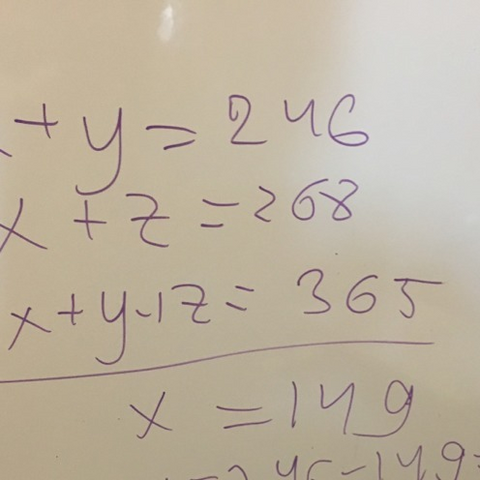 x + y = 246
x + z = 268
x + y + z = 365
x = 149
= 246 - 149 =